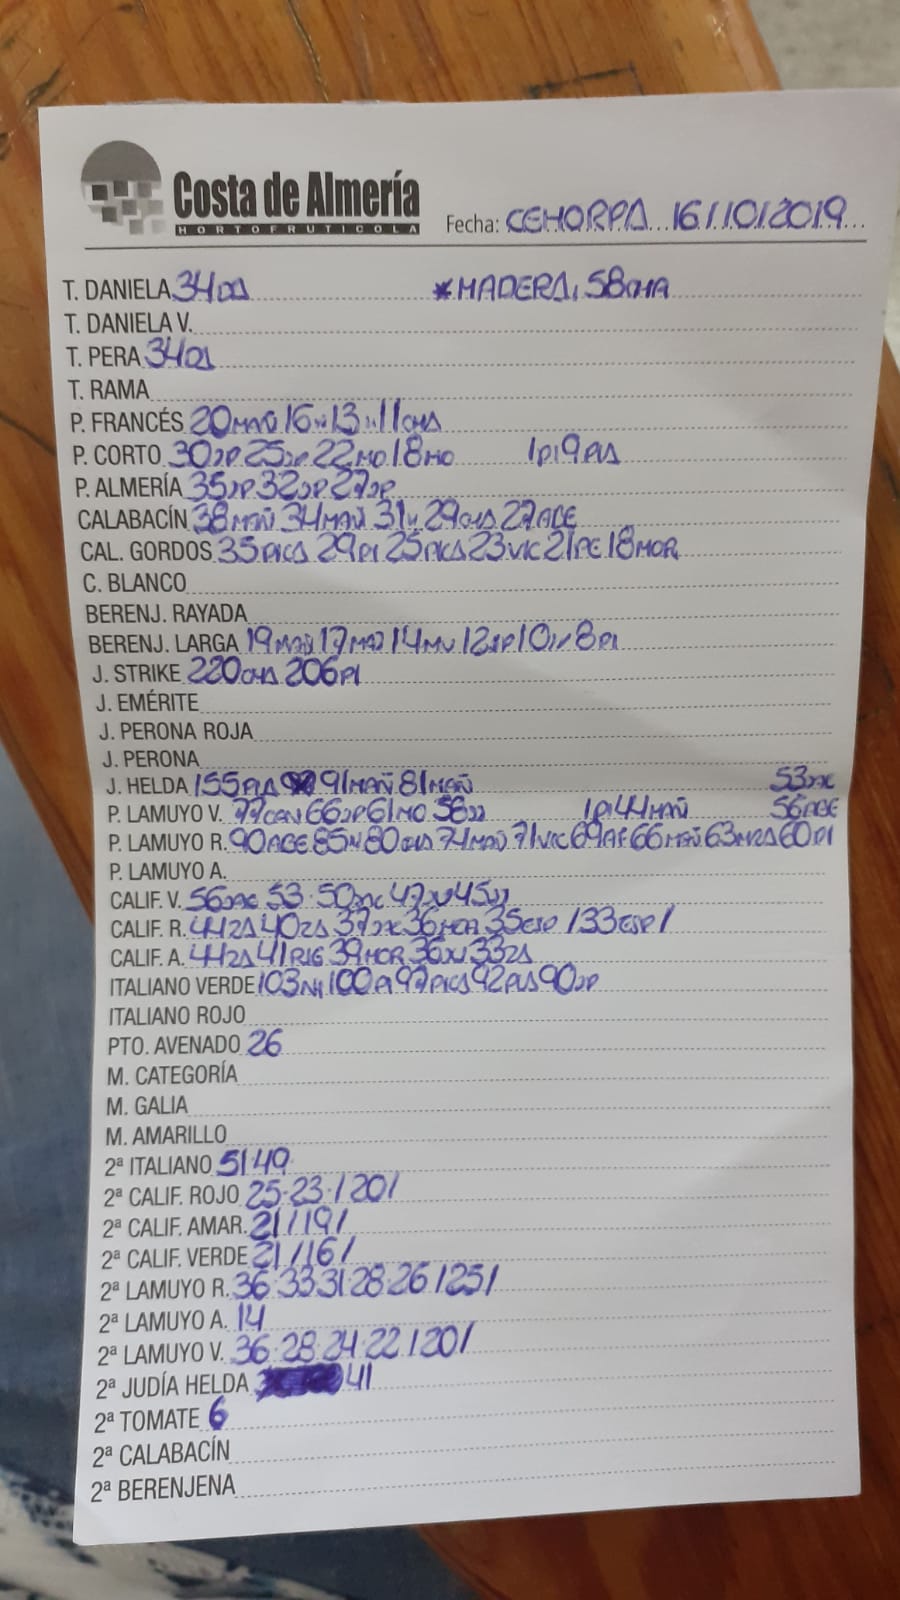 Costa de Almería
HORTOFRUTICOLA
Fecha: CEHORPA 16/10/2019
T. DANIELA 34DA *MADERA, 58CHA
T. DANIELA V.
T. PERA 34DA
T. RAMA
P. FRANCÉS 20MAÑ 16 13 11CHA
P. CORTO 30JP 25JP 22MO 18MO 1P 19PLA
P. ALMERÍA 35JP 32JP 27JP
CALABACÍN 38MAÑ 34MAÑ 31 29CHA 27AGE
CAL. GORDOS 35PICA 29PI 25PICA 23VIC 21PE 18MOR
C. BLANCO
BERENJ. RAYADA
BERENJ. LARGA 19MAÑ 17MAÑ 14MU 12JP 10 8PI
J. STRIKE 220CHA 206PI
J. EMÉRITE
J. PERONA ROJA
J. PERONA
J. HELDA 155PLA 91MAÑ 81MAÑ 53
P. LAMUYO V. 77CAN 66JP 61MO 58JJ 1P 44MAÑ 56AGE
P. LAMUYO R. 90AGE 85 80CHA 74MAÑ 71VIC 69AF 66MAÑ 63 60PI
P. LAMUYO A.
CALIF. V. 56 53 · 50 47 45
CALIF. R. 44ZA 40ZA 37 36MOR 35ESP /33ESP/
CALIF. A. 44ZA 41RIG 39MOR 36 33ZA
ITALIANO VERDE 103NH 100PI 97PICA 92PLA 90JP
ITALIANO ROJO
PTO. AVENADO 26
M. CATEGORÍA
M. GALIA
M. AMARILLO
2ª ITALIANO 51·49
2ª CALIF. ROJO 25·23·/20/
2ª CALIF. AMAR. 21/19/
2ª CALIF. VERDE 21/16/
2ª LAMUYO R. 36·33·31·28·26/25/
2ª LAMUYO A. 14
2ª LAMUYO V. 36·28·24·22/20/
2ª JUDÍA HELDA 41
2ª TOMATE 6
2ª CALABACÍN
2ª BERENJENA